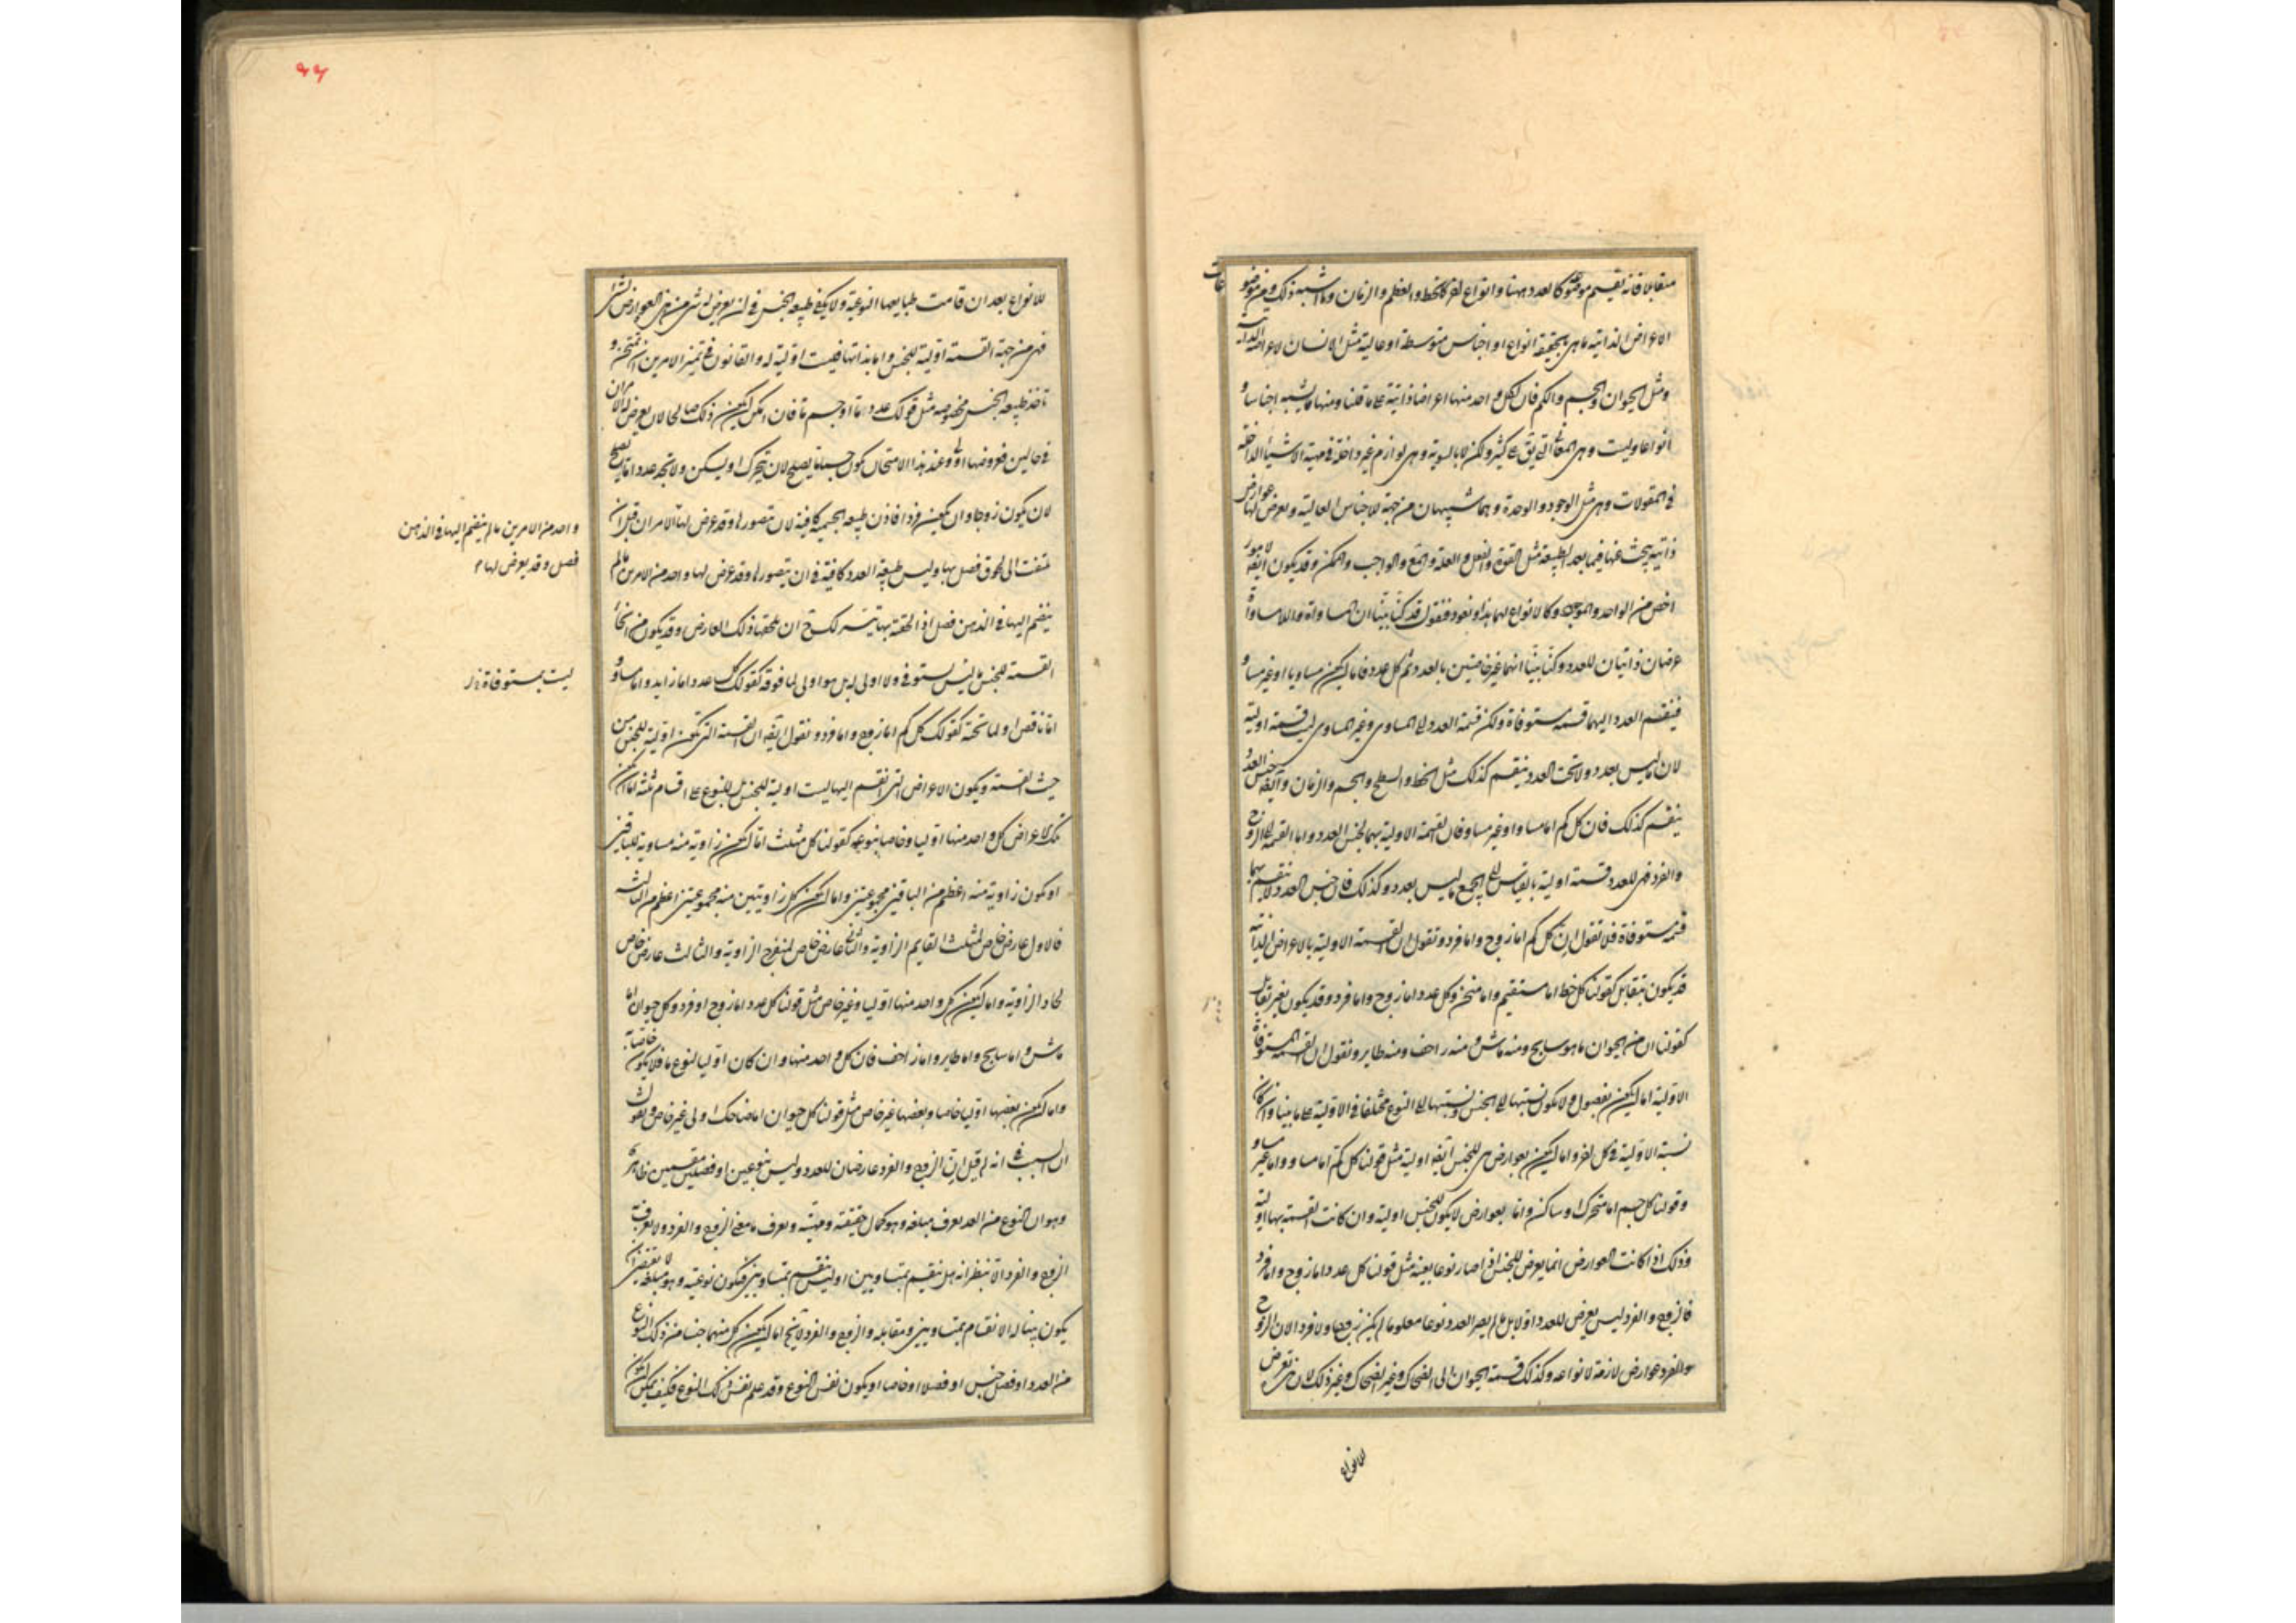 متقابلا فانه تقسيم موضوع كالعدد ههنا وانواع اخر كالخط والعظم والزمان وما اشبه ذلك ومن موضوعات
الاعراض الذاتية ما هى بالحقيقة انواع او اجناس متوسطة او عالية مثل الانسان لاعراضه الذاتية
ومثل الحيوان والجسم والكم فان لكل واحد منها اعراضا ذاتية على ما قلنا ومنها ما يشبه اجناسا و
انواعا وليست وهى المعانى التى يق على كثير ولكن لا بالسوية وهى لوازم غير داخلة فى مهية الاشياء الداخلة
فى المقولات وهى مثل الوجود والوحدة وهما شبيهان من جهة للاجناس العالية ويعرض لها عوارض
ذاتية يبحث عنها فيما بعد الطبيعة مثل القوة والفعل والعلة والمع والواجب والممكن وقد يكون ايضا لامور
اخص من الواحد والموجود وكالانواع لهما هذا ونعود فنقول قد كنا بينا ان المساواة واللامساواة
عرضان ذاتيان للعدد وكنا بينا انهما غير خاصتين بالعدد ثم كل عدد فاما ان يكون مساويا او غير مساو
فينقسم العدد اليهما قسمة مستوفاة ولكن قسمة العدد الى المساوى وغير المساوى ليست قسمة اولية
لان ما ليس بعدد ولا تحت العدد ينقسم كذلك مثل الخط والسطح والجسم والزمان وايضا جنس العدد
ينقسم كذلك فان كل كم اما مساو او غير مساو فان القسمة الاولية بهما لجنس العدد واما القسمة الى الزوج
والفرد فهى للعدد قسمة اولية بالقياس الى جميع ما ليس بعدد وكذلك فان جنس العدد لا ينقسم بهما
قسمة مستوفاة فلا نقول ان كل كم اما زوج واما فرد ونقول ان القسمة الاولية بالاعراض الذاتية
قد يكون بتقابل كقولنا كل خط اما مستقيم واما منحن وكل عدد اما زوج واما فرد وقد يكون بغير تقابل
كقولنا ان من الحيوان ما هو سابح ومنه ماش ومنه زاحف ومنه طاير ونقول ان القسمة المستوفاة
الاولية اما ان يكون بفصول ولا يكون نسبتها الى الجنس ونسبتها الى النوع مختلفا فى الاولية على ما بينا وان كان
نسبة الاولية فى كل اخر واما ان يكون بعوارض هى للجنس ايضا اولية مثل قولنا كل كم اما مساو واما غير مساو
وقولنا كل جسم اما متحرك او ساكن واما بعوارض لا يكون للجنس اولية وان كانت القسمة بها اولية
وذلك اذا كانت العوارض انما يعرض للجنس اذا صار نوعا بعينه مثل قولنا كل عدد اما زوج واما فرد
فالزوج والفرد ليس يعرض للعدد اولا بل ما لم يصر العدد نوعا معلوما لم يكن زوجا ولا فردا لان الزوج
والفرد عوارض لازمة لانواعه وكذلك قسمة الحيوان الى الضحاك وغير الضحاك وغير ذلك لان هذه تعرض
للانواع
للانواع بعد ان قامت طبايعها النوعية ولا يكفى طبيعة الجنس فى ان يعرض له شئ من هذه العوارض التى
فهى من جهة القسمة اولية للجنس واما بذاتها فليست اولية له والقانون فى تميز الامرين ان تمتحن و
تاخذ طبيعة الجنس مخصوصه مثل قولك عدد ما او جسم ما فان امكن ان يكون ذلك صالحا لان يعرض له الامران
فى حالين فعروضهما اولى وعند هذا الامتحان يكون جسما ما يصلح لان يتحرك او يسكن ولا تجد عددا ما يصلح
لان يكون زوجا وان يكون فردا فاذن طبيعة الجسمية كافية لان يتصور لها وقد عرض لها الامران قبل ان
يلتفت الى لحوق فصل بها وليس طبيعة العدد كافية فى ان يتصور لها وقد عرض لها واحد من الامرين ما لم
ينضم اليها فى الذهن فصل اذا الحقته بها تيسر لك ح ان تلحقها ذلك العارض وقد يكون من انحاء
القسمة للجنس ما ليس بمستوف ولا اولى له بل هو اولى لما فوقه كقولك كل عدد اما زايد واما مساو و
اما ناقص او لما تحته كقولك كل كم اما زوج واما فرد ونقول ايضا ان القسمة التى تكون اولية للجنس من
حيث القسمة ويكون الاعراض التى انقسم اليها ليست اولية للجنس بل للنوع على اقسام ثلثة اما ان يكون
تلك الاعراض كل واحد منها اوليا وخاصا بنوعه كقولنا كل مثلث اما ان يكون زاوية منه مساوية للباقيتين
او يكون زاوية منه اعظم من الباقيتين مجموعتين واما ان يكون كل زاويتين منه مجموعتين اعظم من الثالثة
فالاول عارض خاص لمثلث القايم الزاوية والثانى عارض خاص لمنفرج الزاوية والثالث عارض خاص
لحاد الزاوية واما ان يكون كل واحد منها اوليا وغير خاص مثل قولنا كل عدد اما زوج او فرد وكل حيوان اما
ماش واما سابح واما طاير واما زاحف فان كل واحد منها وان كان اوليا لنوع ما فلا يكون خاصا به
واما ان يكون بعضها اوليا خاصا وبعضها غير خاص مثل قولنا كل حيوان اما ضاحك اولى غير خاص ونقول
ان السبب فى انه لم قيل ان الزوج والفرد عارضان للعدد وليس بنوعين او فصلين مقسمين ظاهر
وهو ان النوع من العدد يعرف مبلغه وهو كمال حقيقته ومهيته ويعرف ما معنى الزوج والفرد ولا يعرف
الزوج والفرد الا بنظر انه هل ينقسم بمتساويين او ليس ينقسم بمتساويين فيكون نوعيته وهو مبلغه لا يقتضى ان
يكون بينا له الانقسام بمتساويين ومقابله والزوج والفرد لا يخ اما ان يكون كل منهما جنسا من ذلك النوع
من العدد او فصل جنس او فصلا او خاصا او يكون نفس النوع وقد علم نفس ذلك النوع فكيف يمكن ان يكون
واحد من الامرين ما لم ينضم اليها فى الذهن
فصل وقد يعرض لها
ليست بمستوفاة